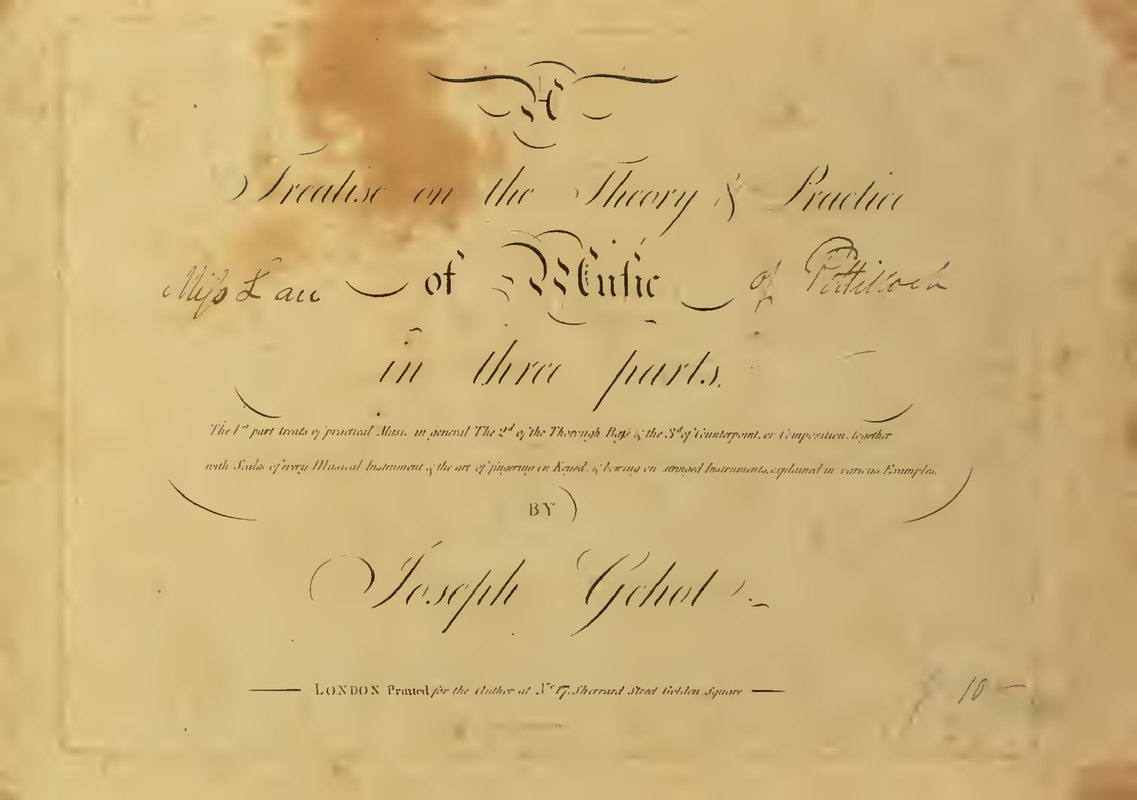 A
Treatise on the Theory & Practice
Miss Law of Music of Pittilloch
in three parts.
The 1st part treats of practical Music in general The 2d of the Thorough Bass & the 3d of Counterpoint, or Composition, together
with Scales of every Musical Instrument & the art of fingering on Keyed, & bowing on stringed Instruments, explained in various Examples.
BY
Joseph Gehot
LONDON Printed for the Author at No 17, Sherrard Street Golden Square
10